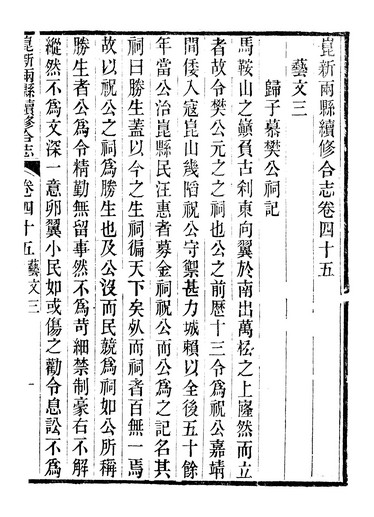 崑新兩縣續修合志卷四十五
藝文三
歸子慕樊公祠記
馬鞍山之巔負古刹東向翼於南出萬松之上窿然而立
者故令樊公元之之祠也公之前歷十三令爲祝公嘉靖
間倭入寇崑山幾陷祝公守禦甚力城賴以全後五十餘
年當公治崑縣民汪惠者募金祠祝公而公爲之記名其
祠曰勝生蓋以今之生祠徧天下矣然而祠者百無一焉
故以祝公之祠爲勝生也及公沒而民競爲祠如公所稱
勝生者公爲令精勤無留事然不爲苛細禁制豪右不解
縱然不爲文深一意卵翼小民如或傷之勸令息訟不爲
崑新兩縣續修合志
卷四十五
藝文三
一